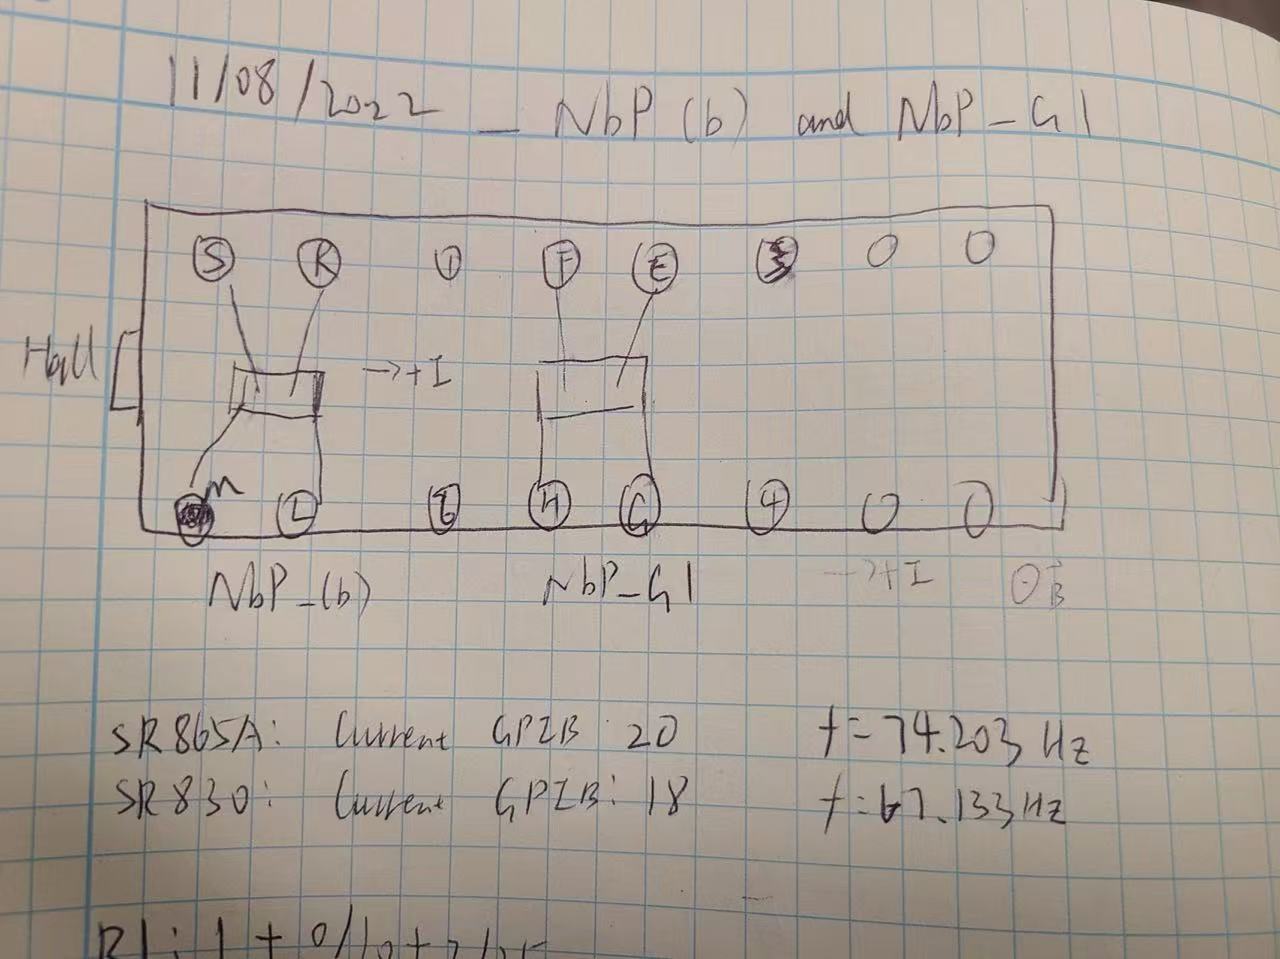 11/08/2022 — NbP (b) and NbP-G1
S R F E
Hall
→+I
M L H G 4
NbP-(b) NbP-G1 →+I ⊙B
SR865A: Current GPIB: 20 f=74.203 Hz
SR830: Current GPIB: 18 f=67.133 Hz